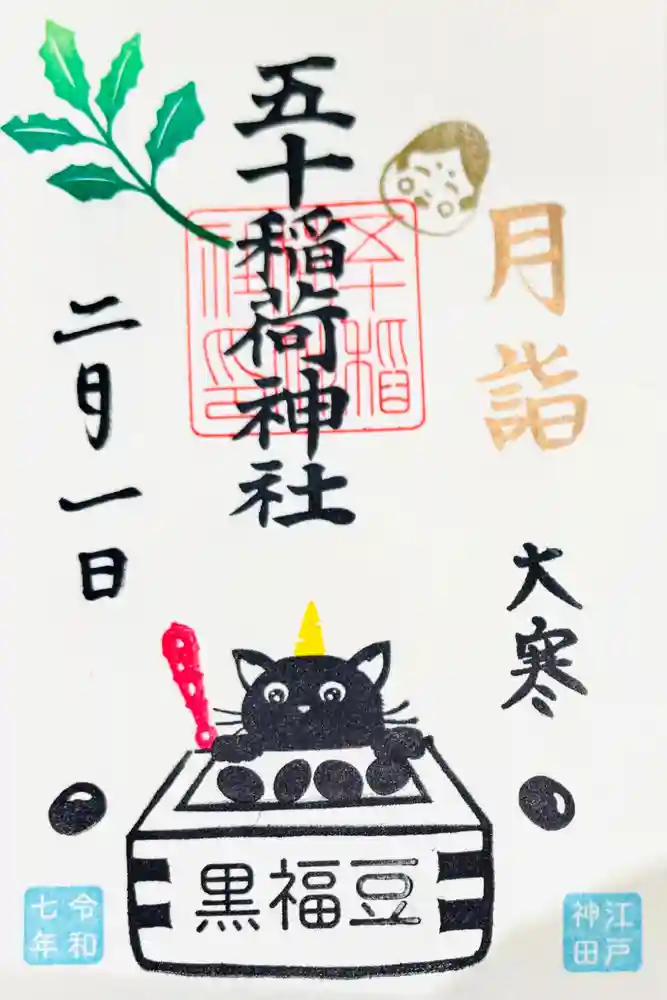 月詣
大寒
五十稲荷神社
五十稲
二月一日
黒福豆
江戸
神田
令和
七年